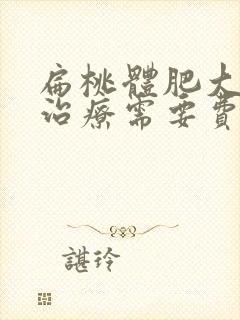 扁桃體肥大
治療需要費
諶玲